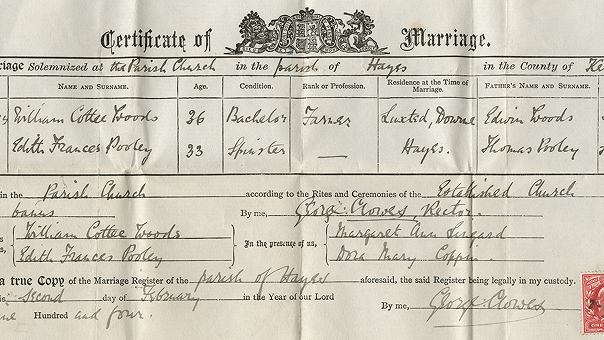 Certificate of Marriage.
riage Solemnized at the Parish Church in the parish of Hayes in the County of Ke
NAME AND SURNAME. AGE. CONDITION. RANK OR PROFESSION. RESIDENCE AT THE TIME OF MARRIAGE. FATHER'S NAME AND SURNAME.
William Cottee Woods 36 Bachelor Farmer Luxted, Downe Edwin Woods
Edith Frances Pooley 33 Spinster — Hayes. Thomas Pooley
in the Parish Church according to the Rites and Ceremonies of the Established Church
banns By me, George Clowes, Rector.
William Cottee Woods In the presence of us, Margaret Ann
Edith Frances Pooley Dora Mary Coppin
a true Copy of the Marriage Register of the parish of Hayes aforesaid, the said Register being legally in my custody.
is Second day of February in the Year of our Lord
By me, George Clowes
ne Hundred and four.
ONE